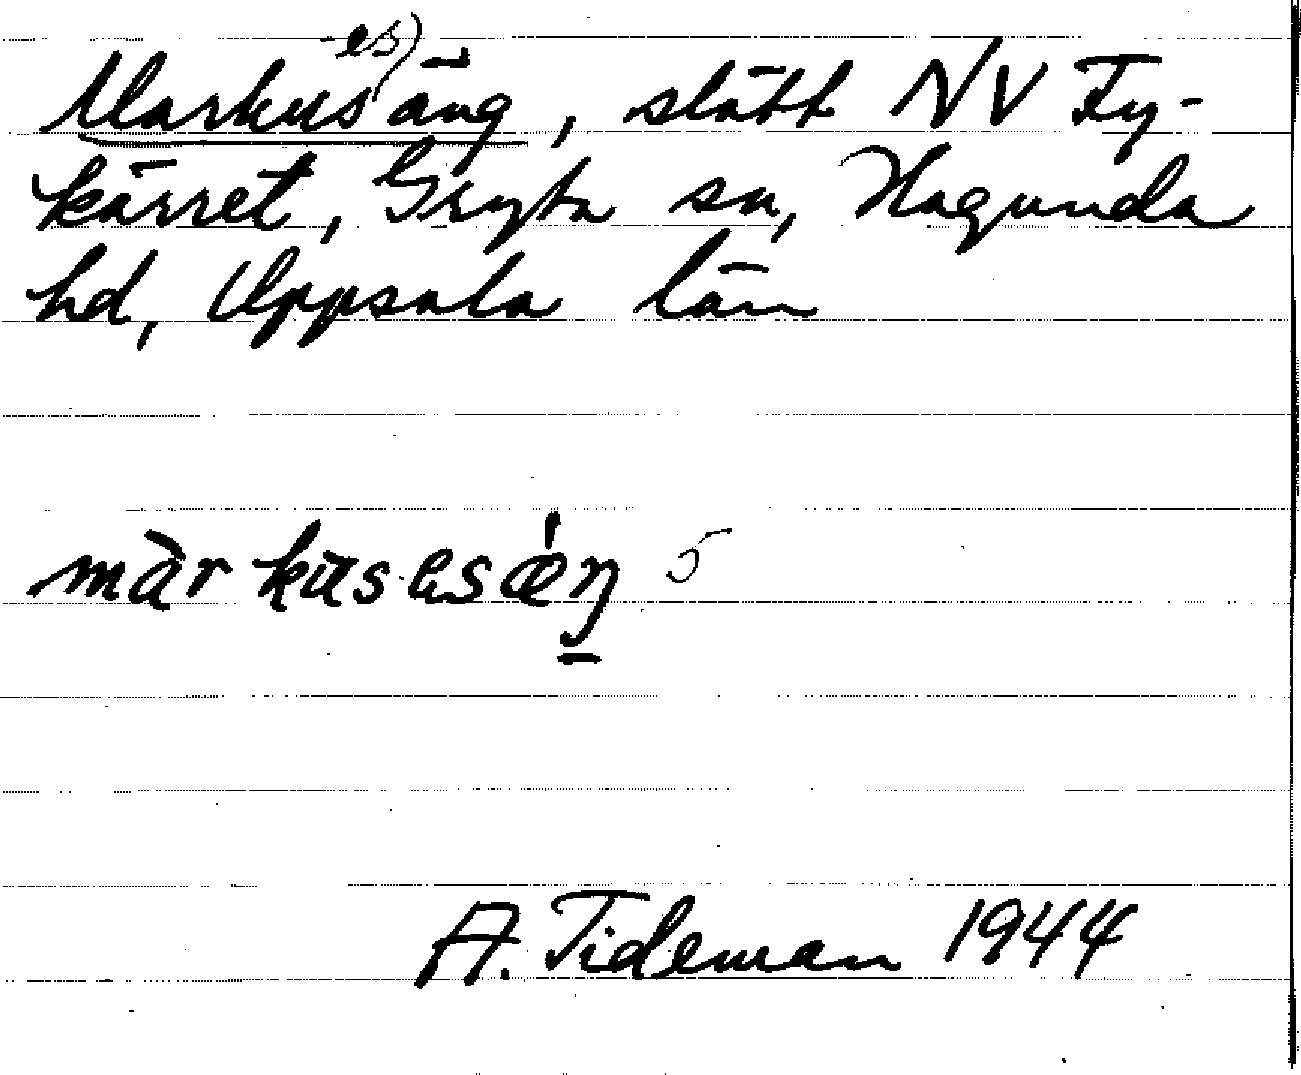 -es)
Markusäng, slätt NV Fy-
kärret, Gryta sn, Hagunda
hd, Uppsala län
màrkusesǽŋ 5
A. Tideman 1944